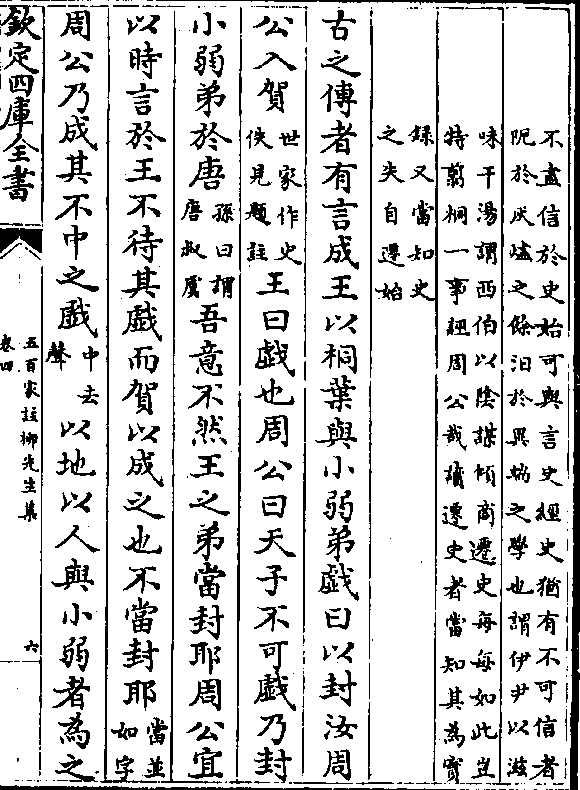 不盡信於史始可與言史經史猶有不可信者
阨於灰燼之餘汨於異端之學也謂伊尹以滋
味干湯謂西伯以陰謀傾商遷史每每如此豈
特翦桐一事誣周公哉讀遷史者當知其為實
錄又當知史
之失自遷始
古之傳者有言成王以桐葉與小弱弟戲曰以封汝周
公入賀世家作史佚見題註王曰戲也周公曰天子不可戲乃封
小弱弟於唐孫曰謂唐叔虞吾意不然王之弟當封耶周公宜
以時言於王不待其戲而賀以成之也不當封耶當並如字
周公乃成其不中之戲中去聲以地以人與小弱者為之
欽定四庫全書
五百家註柳先生集
卷四
六